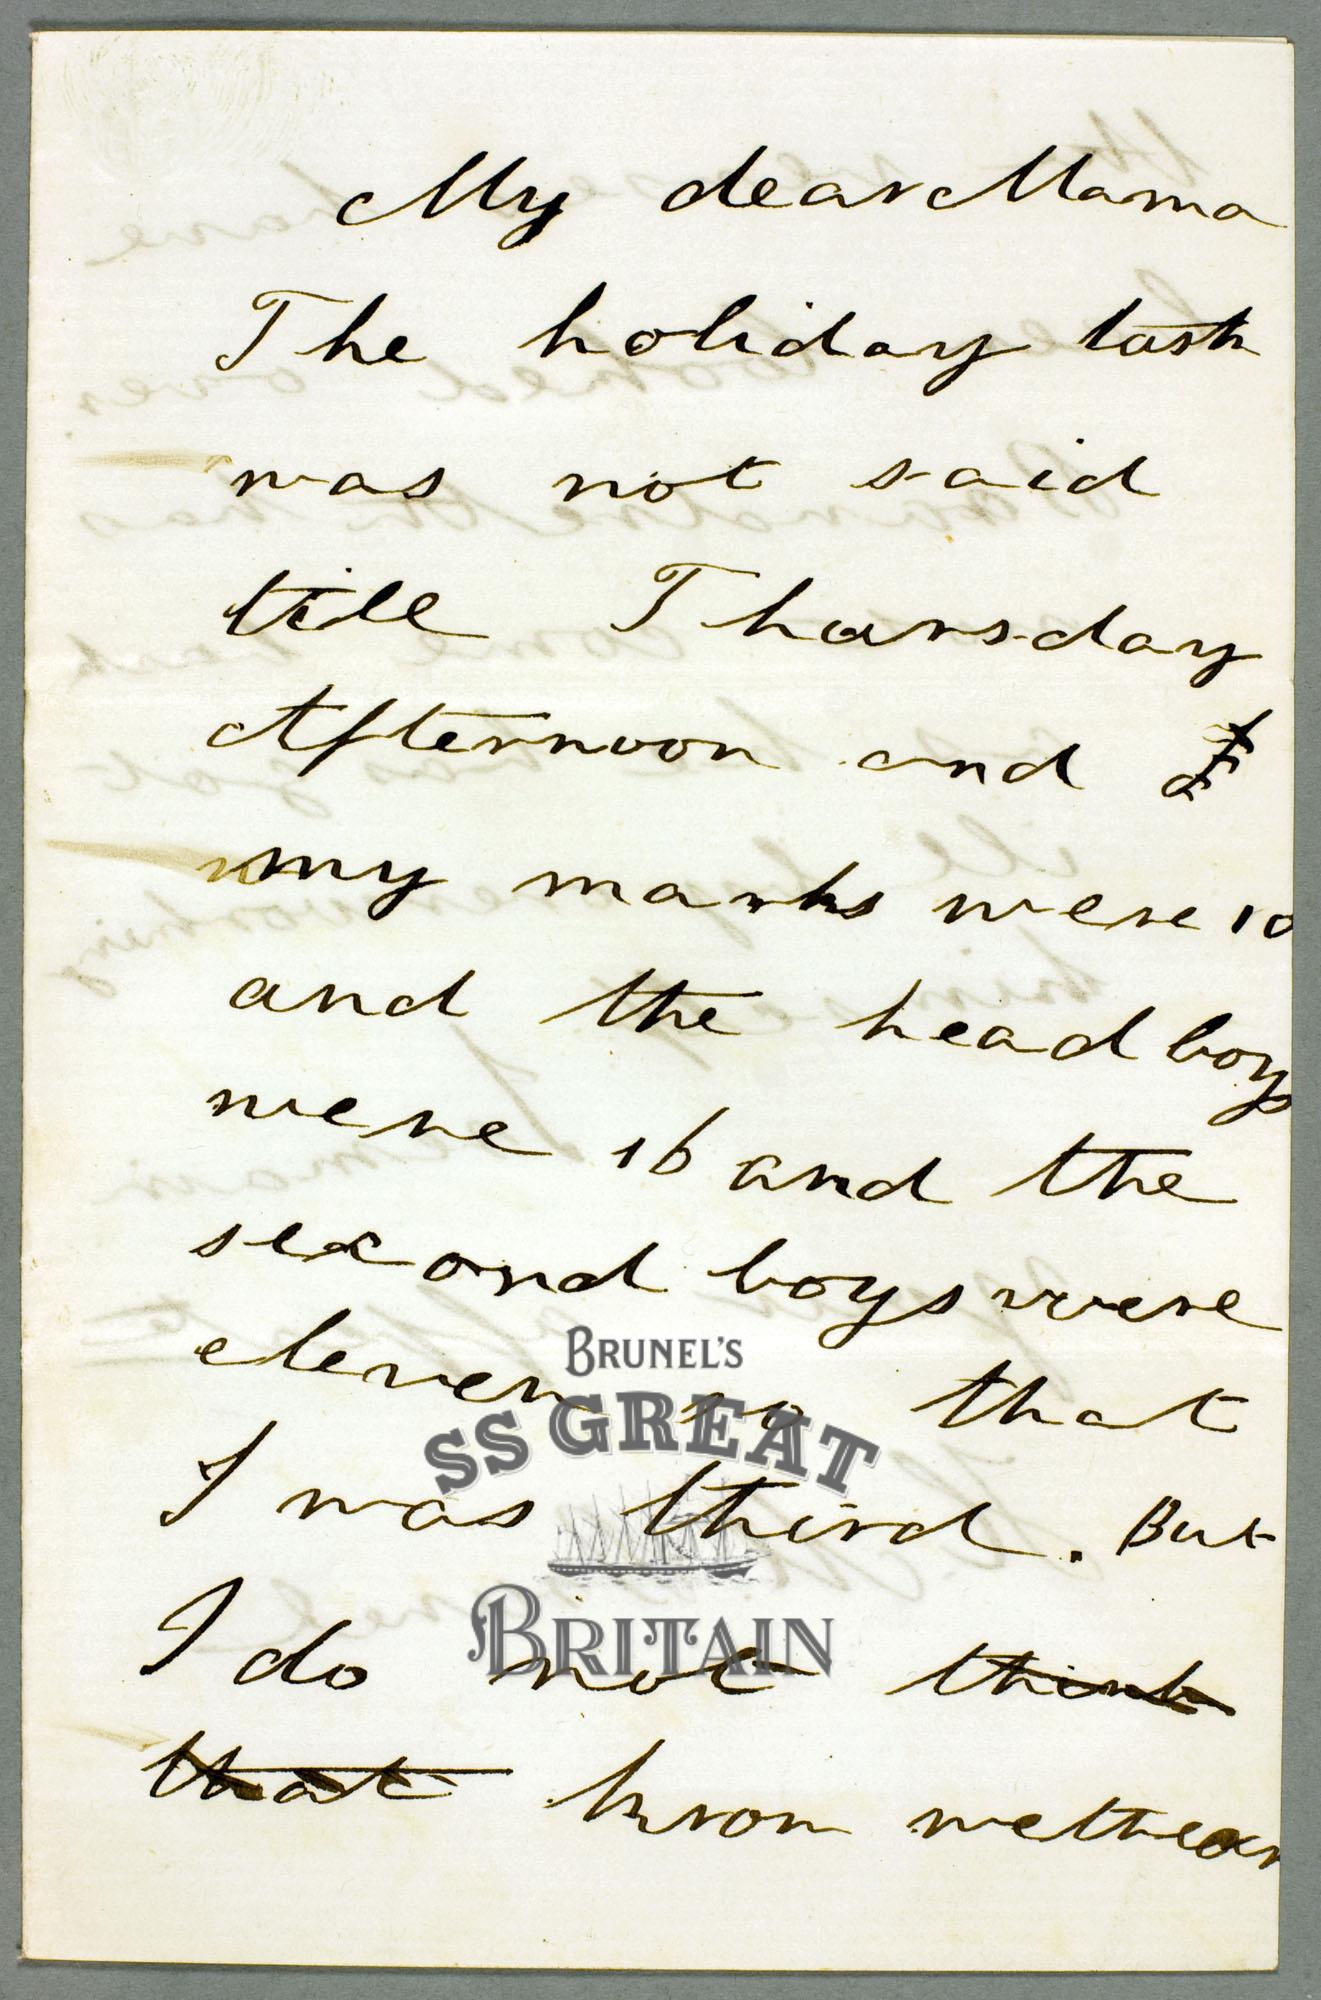 My dear Mama
The holiday task
was not said
till Thursday
Afternoon and
my marks were 10
and the head boys
were 16 and the
second boys were
eleven so that
I was third. But
I do not think
that know wethear
BRUNEL'S
SS GREAT
BRITAIN